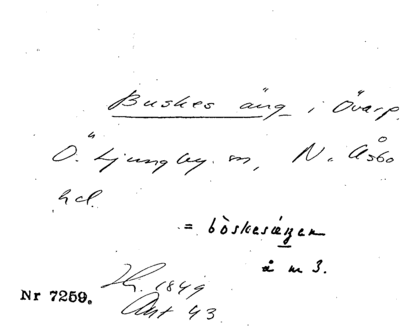 Buskes äng i Övarp,
Ö. Ljungby sn, N. Åsbo
hd.
= böskesängen
å m 3.
Nr 7259.
1849
Akt 43